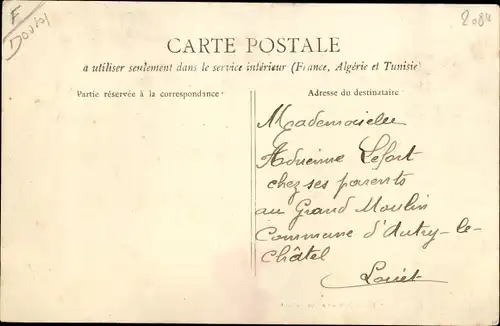 F
2084
CARTE POSTALE
a utiliser seulement dans le service intérieur (France, Algérie et Tunisie)
Partie réservée à la correspondance
Adresse du destinataire
Mademoiselle
Adrienne Lefort
chez ses parents
au Grand Moulin
Commune d'Autry-le-
Châtel
Loiret